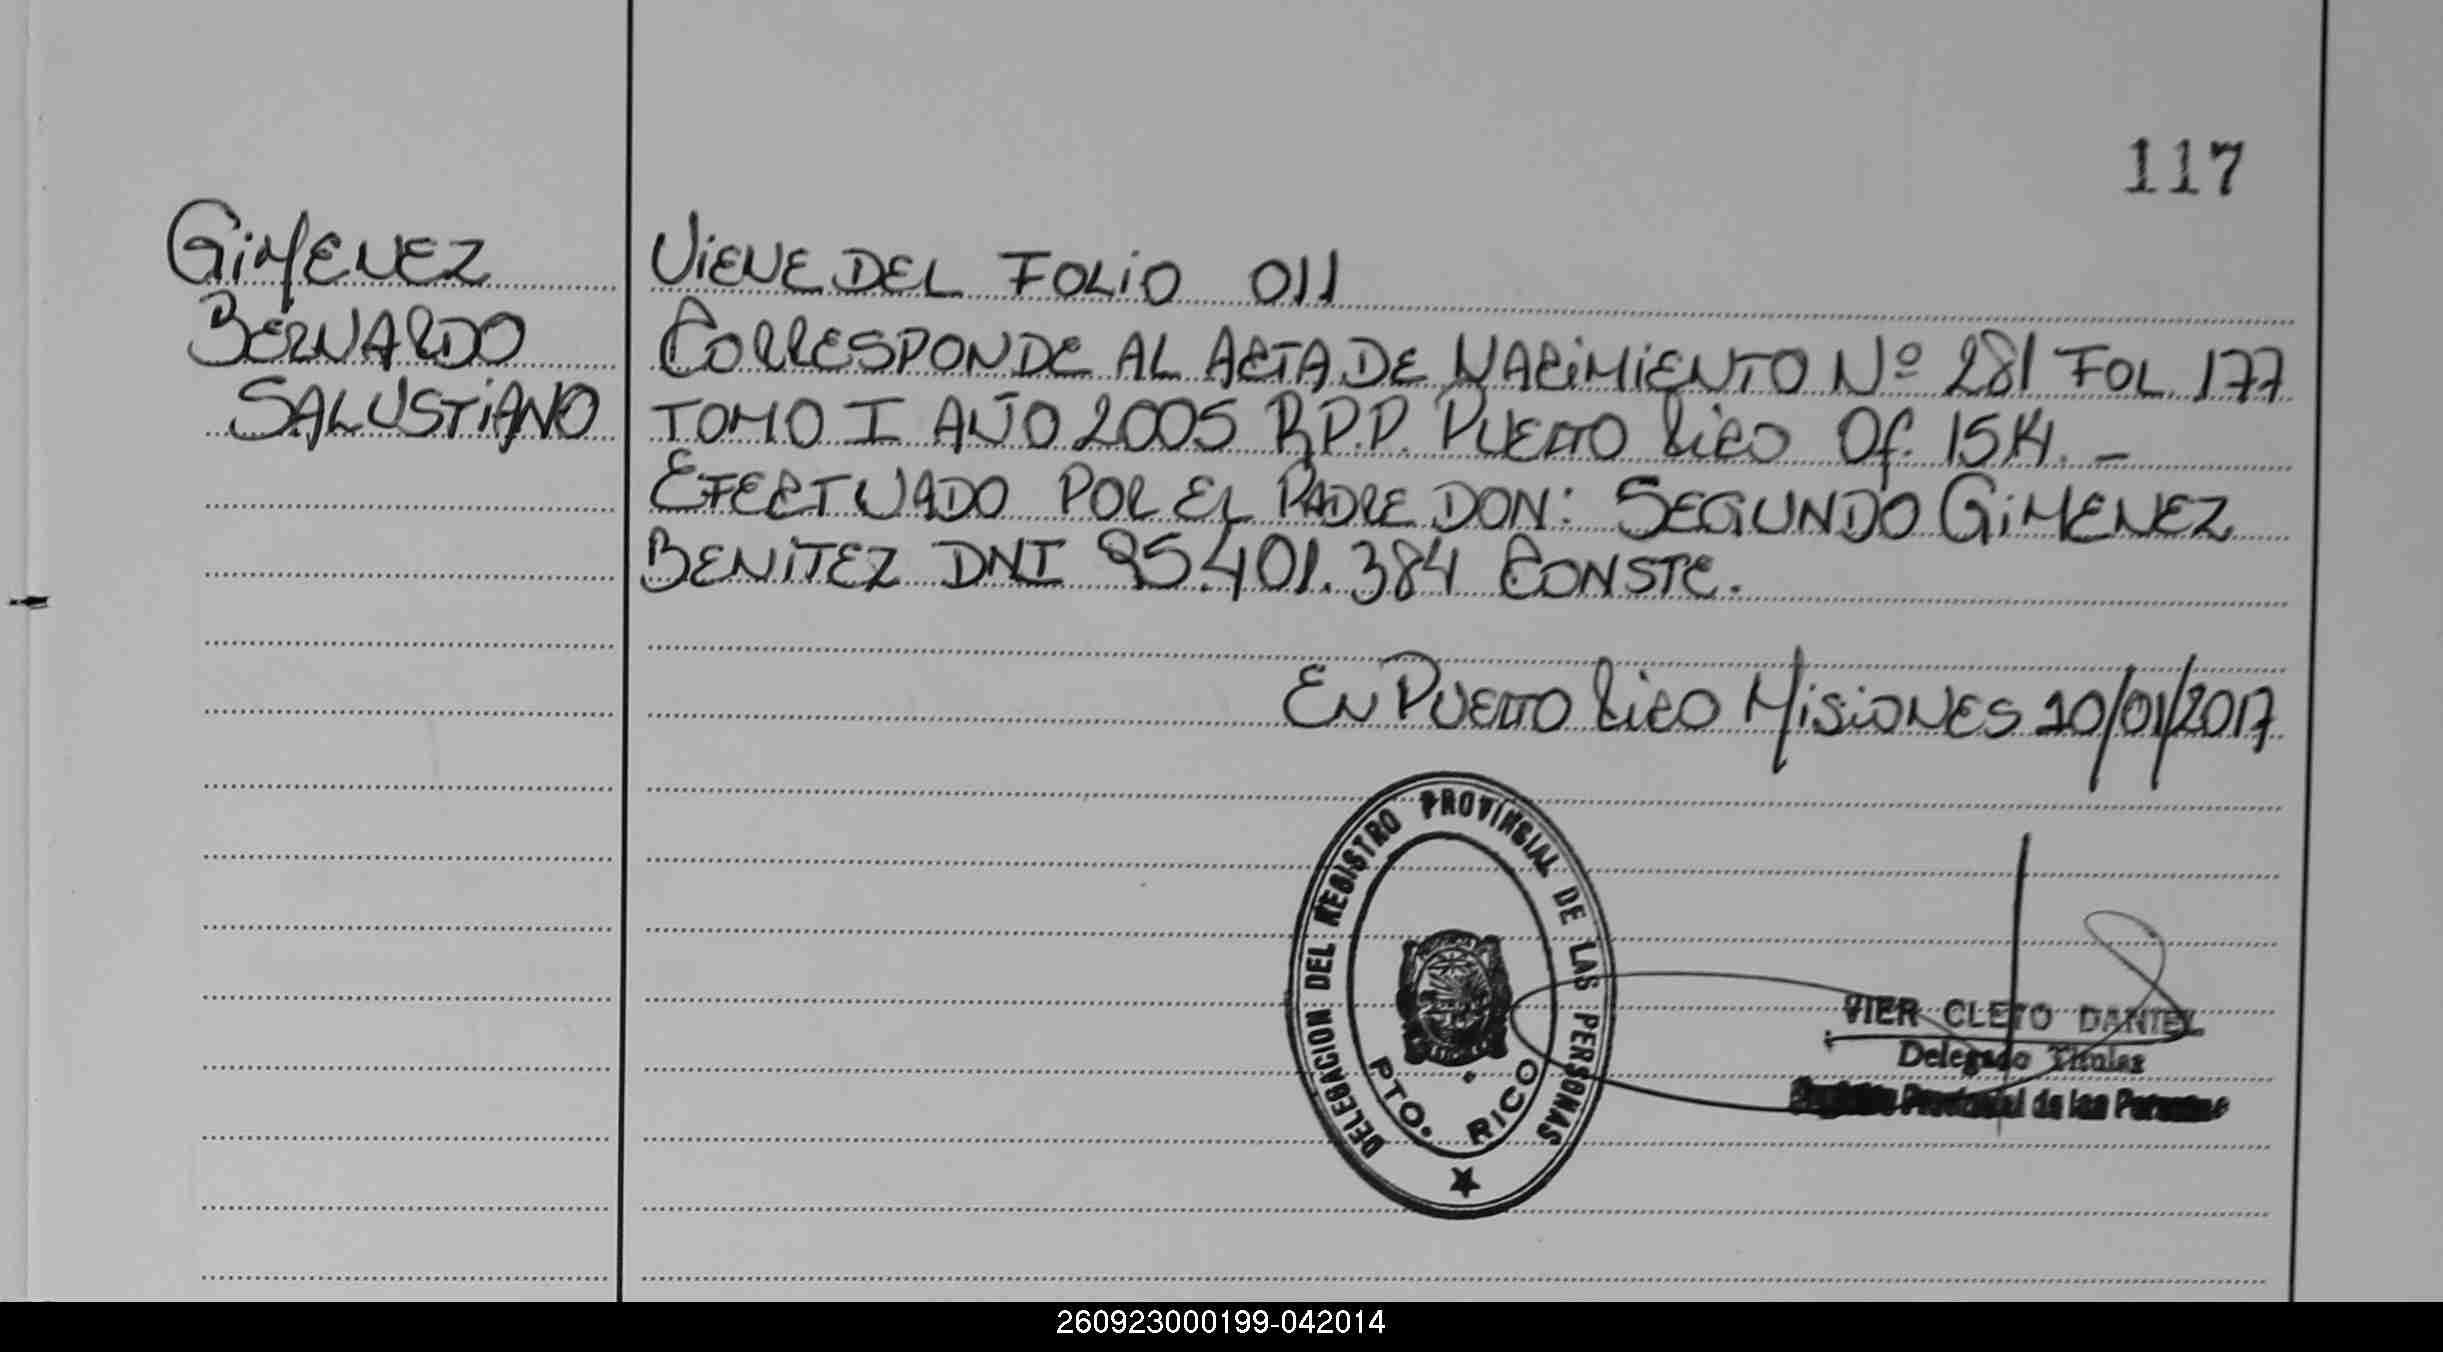 117
GIMENEZ
BERNARDO
SALUSTIANO
VIENE DEL FOLIO 011
CORRESPONDE AL ACTA DE NACIMIENTO Nº 281 FOL. 177
TOMO I AÑO 2005 R.P.P. PUERTO RICO Of. 1514. –
EFECTUADO POR EL PADRE DON: SEGUNDO GIMENEZ
BENITEZ DNI 95.401.384 CONSTE.
EN PUERTO RICO MISIONES 10/01/2017
DELEGACION DEL REGISTRO PROVINCIAL DE LAS PERSONAS
PTO. RICO
VIER CLETO DANIEL
Delegado Titular
Provincial de las Personas
260923000199-042014